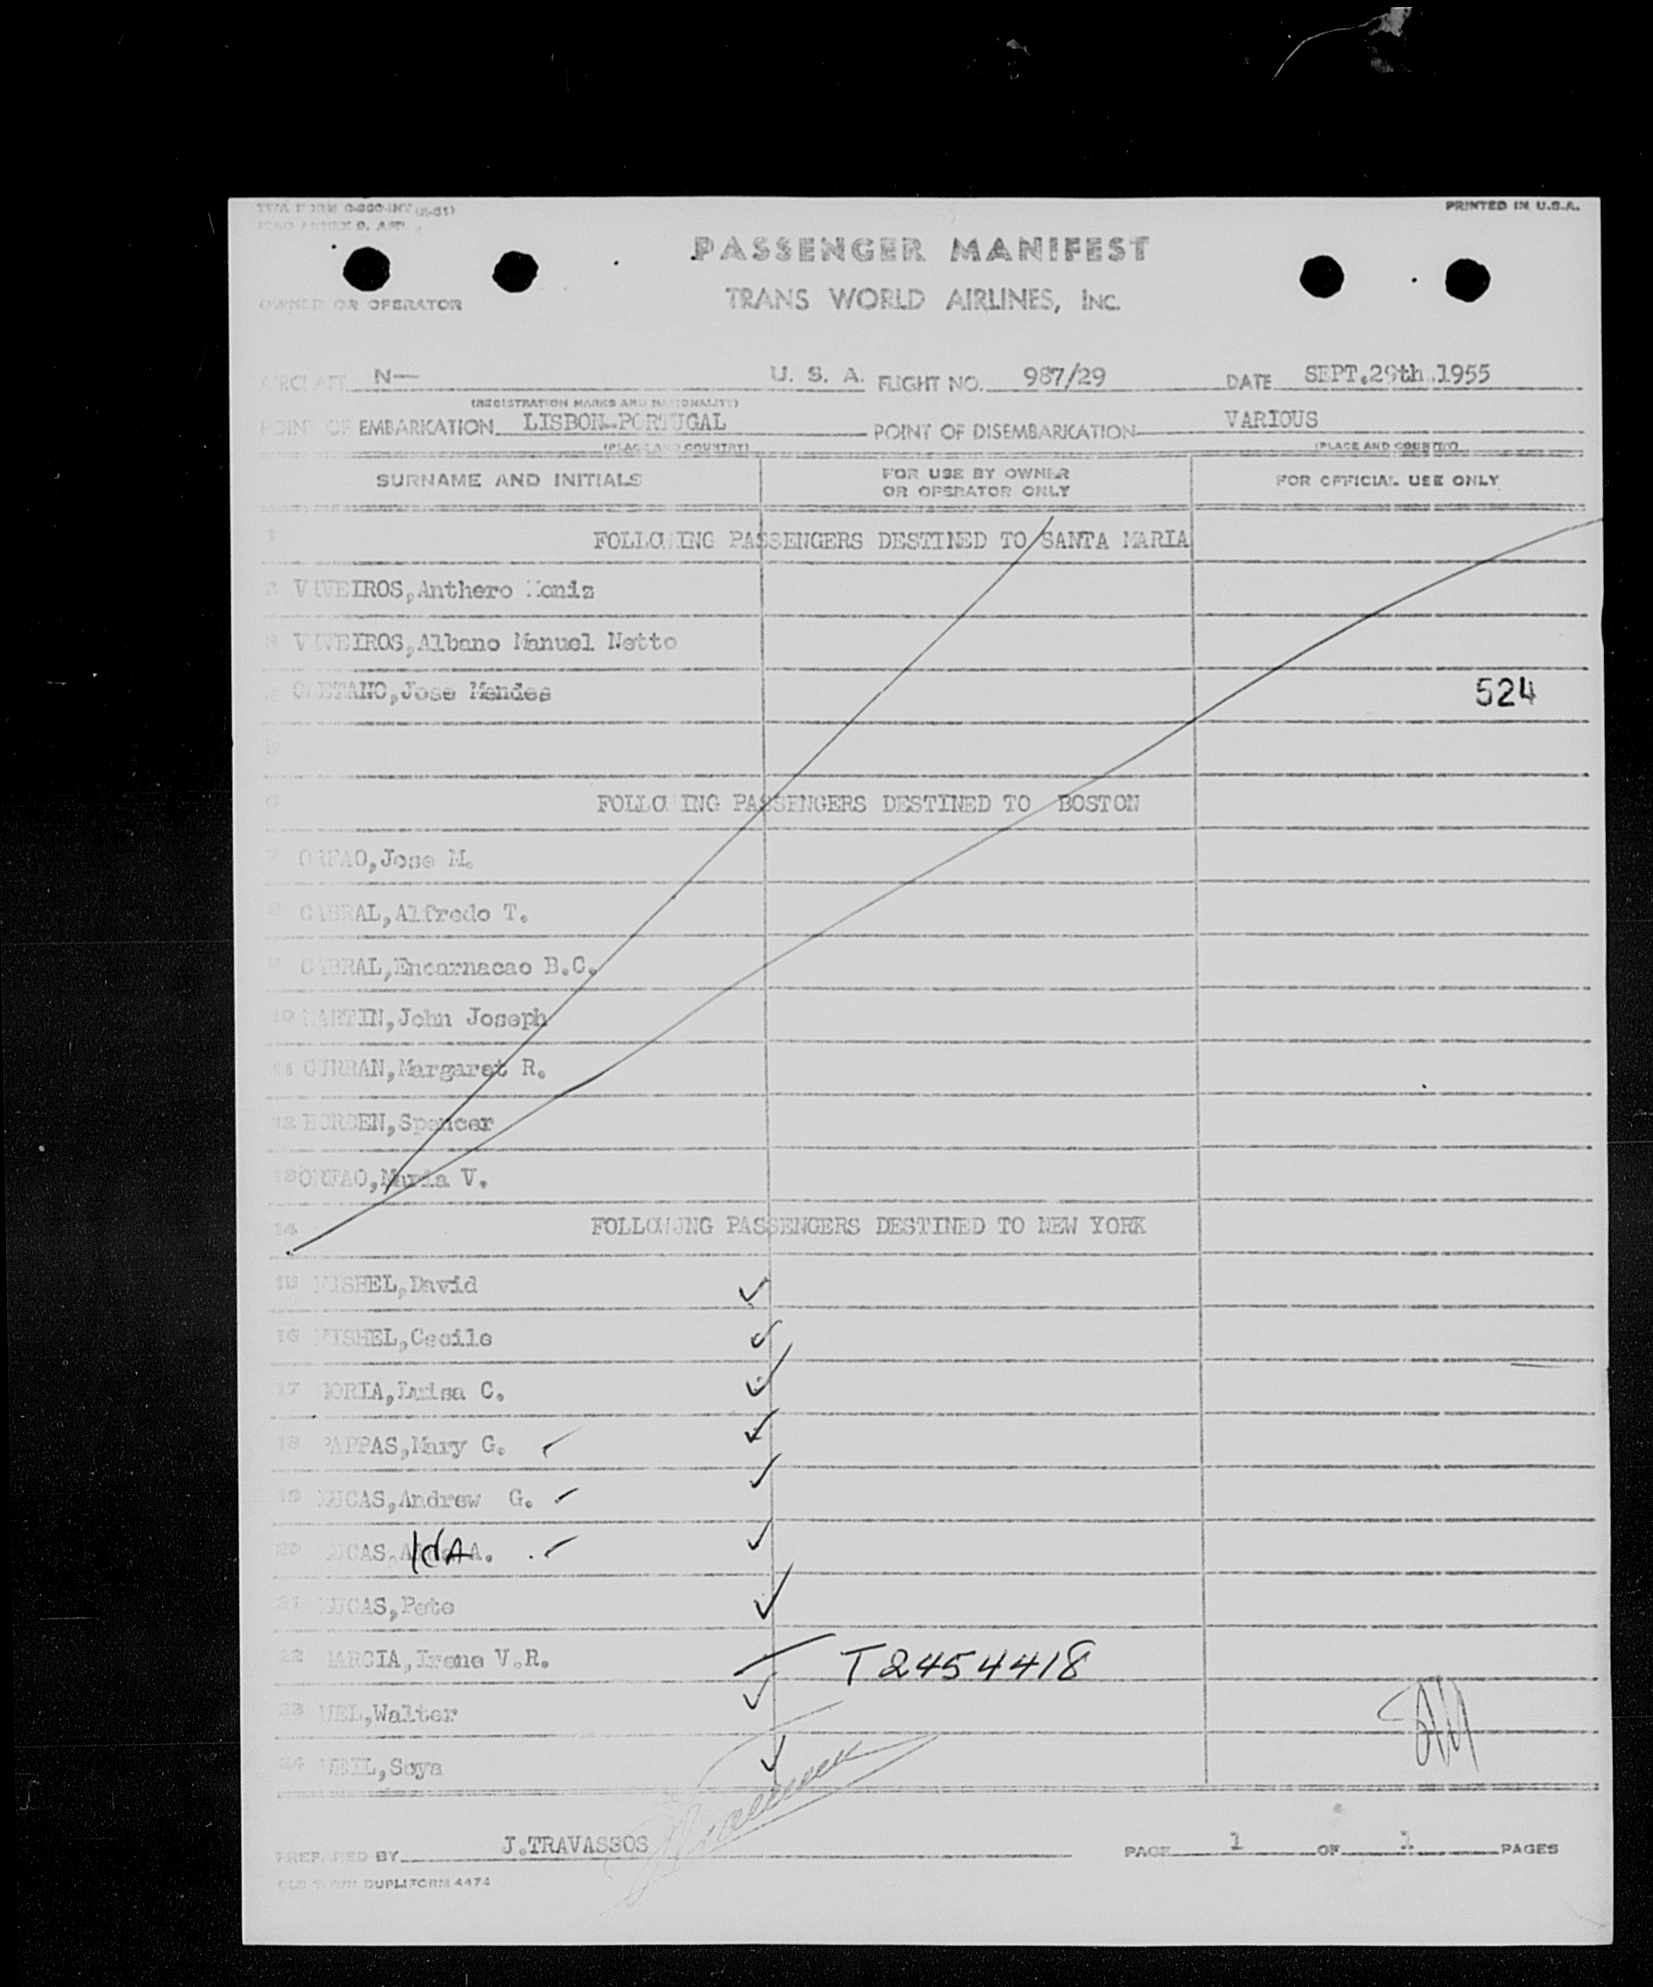 TWA FORM
PRINTED IN U.S.A.
PASSENGER MANIFEST
TRANS WORLD AIRLINES, INC.
OWNER OR OPERATOR
AIRCRAFT N— U. S. A. FLIGHT NO. 987/29 DATE SEPT.29th.1955
(REGISTRATION MARKS AND NATIONALITY)
POINT OF EMBARKATION LISBON-PORTUGAL POINT OF DISEMBARKATION VARIOUS
(PLACE AND COUNTRY) (PLACE AND COUNTRY)
SURNAME AND INITIALS FOR USE BY OWNER OR OPERATOR ONLY FOR OFFICIAL USE ONLY
1 FOLLOWING PASSENGERS DESTINED TO SANTA MARIA
2 VIVEIROS,Anthero Moniz
3 VIVEIROS,Albano Manuel Netto
4 CAETANO,Jose Mendes 524
5
6 FOLLOWING PASSENGERS DESTINED TO BOSTON
7 ORFAO,Jose M.
8 CABRAL,Alfredo T.
9 CABRAL,Encarnacao B.C.
10 MARTIN,John Joseph
11 CURRAN,Margaret R.
12 BORDEN,Spencer
13 ORFAO,Maria V.
14 FOLLOWING PASSENGERS DESTINED TO NEW YORK
15 MISHEL,David ✓
16 MISHEL,Cecile ✓
17 Luisa C. ✓
18 PAPPAS,Mary G. ✓ ✓
19 LUCAS,Andrew G. ✓ ✓
20 LUCAS, IdA A. ✓ ✓
21 LUCAS,Pete ✓
22 GARCIA,Irene V.R. T2454418
23 Walter ✓
24 Soya ✓
PREPARED BY J.TRAVASSOS PAGE 1 OF 1 PAGES
DUPLIFORM 4474